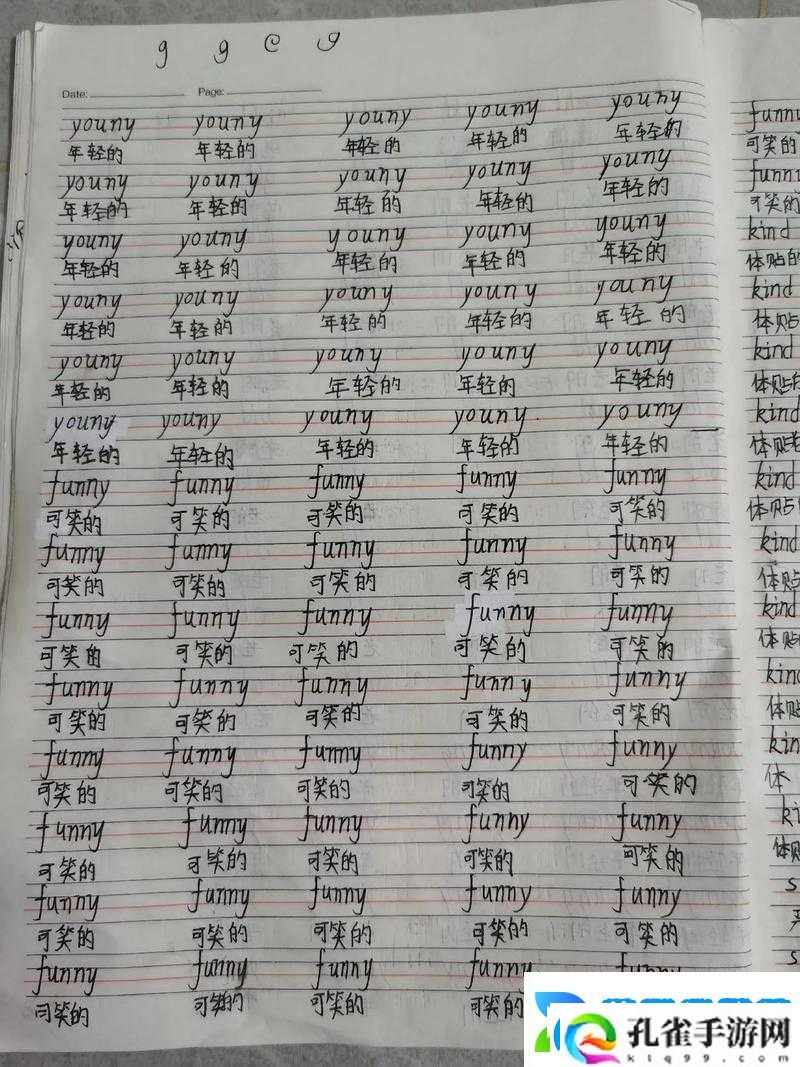 g g e g
Date: Page:
youny youny youny youny youny
年轻的 年轻的 年轻的 年轻的 年轻的
youny youny youny youny youny
年轻的 年轻的 年轻的 年轻的 年轻的
youny youny youny youny youny
年轻的 年轻的 年轻的 年轻的 年轻的
youny youny youny youny youny
年轻的 年轻的 年轻的 年轻的 年轻的
youny youny youny youny youny
年轻的 年轻的 年轻的 年轻的 年轻的
youny youny youny youny youny
年轻的 年轻的 年轻的 年轻的 年轻的
funny funny funny funny funny
可笑的 可笑的 可笑的 可笑的 可笑的
funny funny funny funny funny
可笑的 可笑的 可笑的 可笑的 可笑的
funny funny funny funny funny
可笑的 可笑的 可笑的 可笑的 可笑的
funny funny funny funny funny
可笑的 可笑的 可笑的 可笑的 可笑的
funny funny funny funny funny
可笑的 可笑的 可笑的 可笑的 可笑的
funny funny funny funny funny
可笑的 可笑的 可笑的 可笑的 可笑的
funny funny funny funny funny
可笑的 可笑的 可笑的 可笑的 可笑的
funny funny funny funny
可笑的 可笑的 可笑的 可笑的
funny
可笑的
funny
可笑的
kind
体贴的
kind
体贴
kind
体贴的
kind
体贴
kind
体贴
kind
体贴
kind
体贴
kind
体贴
kin
体
ki
体贴
s
s
孔雀手游网
ktq99.com